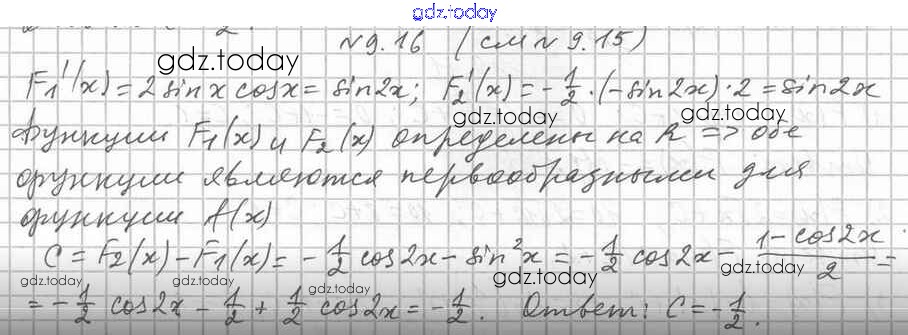 gdz.today
№ 9.16 (см № 9.15)
gdz.today
F₁'(x) = 2 sin x cos x = sin 2x; F₂'(x) = -1/2 · (-sin 2x) · 2 = sin 2x
gdz.today gdz.today
Функции F₁(x) и F₂(x) определены на R => обе
функции являются первообразными для
функции f(x)
C = F₂(x) - F₁(x) = -1/2 cos 2x - sin²x = -1/2 cos 2x - (1 - cos 2x)/2 =
gdz.today gdz.today gdz.today
= -1/2 cos 2x - 1/2 + 1/2 cos 2x = -1/2. Ответ: C = -1/2.
gdz.today gdz.today